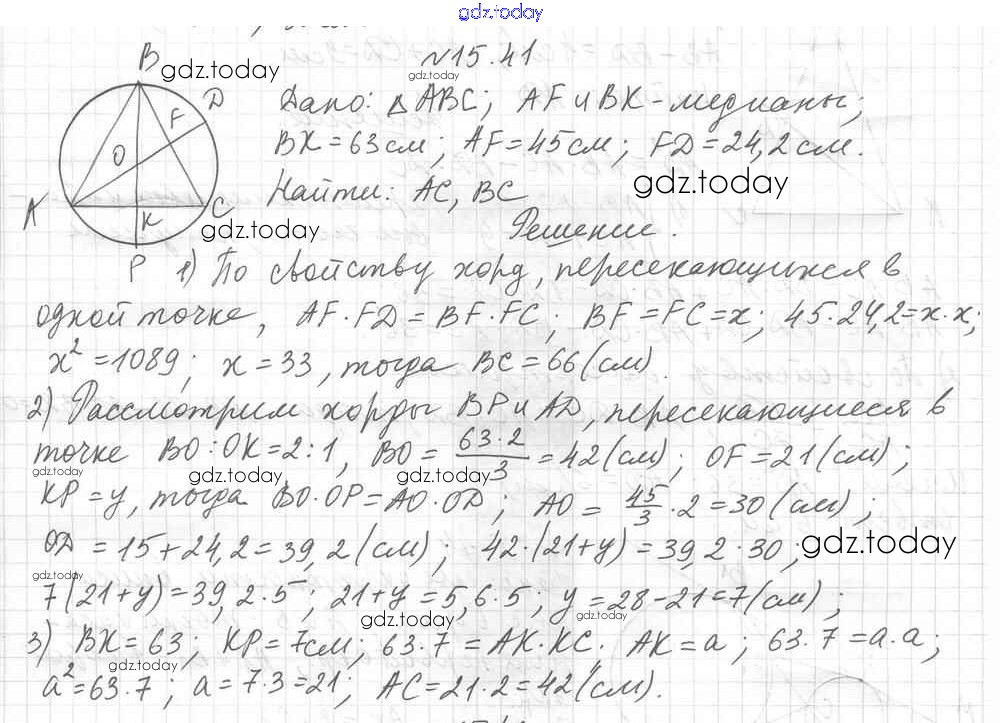 gdz.today
№15.41
B
gdz.today
gdz.today
D
F
O
A
K
C
P
gdz.today
Дано: △ABC; AF и BK - медианы;
BK = 63 см; AF = 45 см; FD = 24,2 см.
gdz.today
Найти: AC, BC
Решение.
1) По свойству хорд, пересекающихся в
одной точке, AF·FD = BF·FC; BF = FC = x; 45·24,2 = x·x;
x² = 1089; x = 33, тогда BC = 66 (см).
2) Рассмотрим хорды BP и AD, пересекающиеся в
точке BO:OK = 2:1, BO = 63·2/3 = 42 (см); OF = 21 (см);
gdz.today gdz.today gdz.today
KP = y, тогда BO·OP = AO·OD; AO = 45/3·2 = 30 (см);
OD = 15 + 24,2 = 39,2 (см); 42·(21+y) = 39,2·30; gdz.today
gdz.today
7(21+y) = 39,2·5; 21+y = 5,6·5; y = 28-21 = 7 (см);
gdz.today gdz.today
3) BK = 63; KP = 7 см; 63·7 = AK·KC. AK = a; 63·7 = a·a;
gdz.today
a² = 63·7; a = 7·3 = 21; AC = 21·2 = 42 (см).
gdz.today